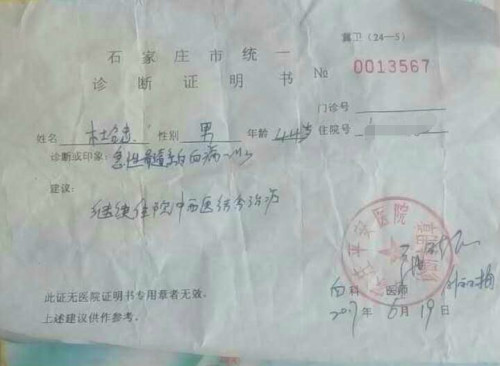 冀卫（24—5）
石家庄市统一
诊断证明书 № 0013567
门诊号
姓名 性别 男 年龄 44岁 住院号
诊断或印象：急性髓系白血病
建议：
继续住院中西医结合治疗
平安医院
此证无医院证明书专用章者无效。
白 科 医师
上述建议供作参考。
2017年6月19日